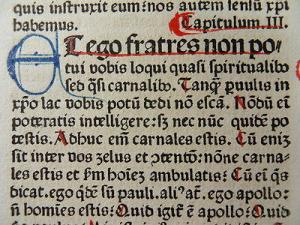 quis instruxit eum: nos autem sensũ xpi
habemus. Capitulum. III.
Et ego fratres non po-
tui vobis loqui quasi spiritualibꝰ
sed qͣsi carnalibꝰ. Tanqͣ ꝑuulis in
xp̃o lac vobis potũ dedi nõ escã. Nõdũ em̃
poteratis intelligere: sʒ nec nũc quidẽ po
testis. Adhuc em̃ carnales estis. Cũ em̃
sit inter vos zelus et ↄtentõ: nõne carna-
les estis et fm̃ hoĩeʒ ambulatis: Cũ em̃ qͥs
dicat. ego qdẽ sũ pauli. aliꝰ at̃. ego apollo:
nõ homĩes estis: Quid igit̃ ẽ apollo: Quid